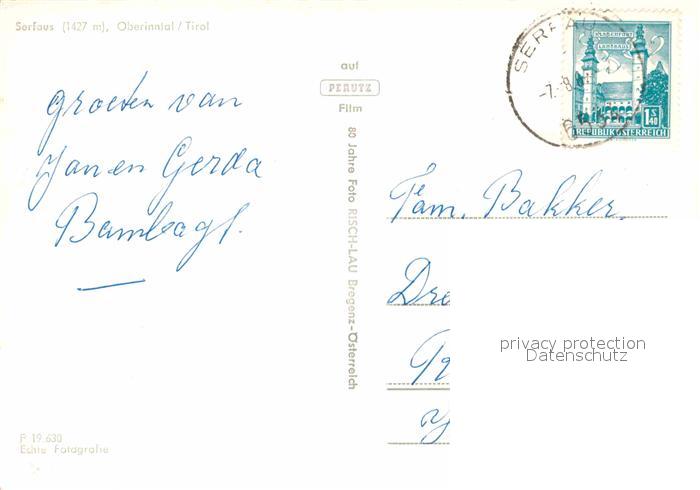 Serfaus (1427 m), Oberinntal / Tirol
auf
PERUTZ
Film
80 Jahre Foto RISCH-LAU Bregenz-Österreich
SERFAUS
-7.-8.
KLAGENFURT
LANDHAUS
1.40
S
REPUBLIK ÖSTERREICH
groeten van
Jan en Gerda
Fam. Bakker.
Dre
privacy protection
Datenschutz
P 19.630
Echte Fotografie